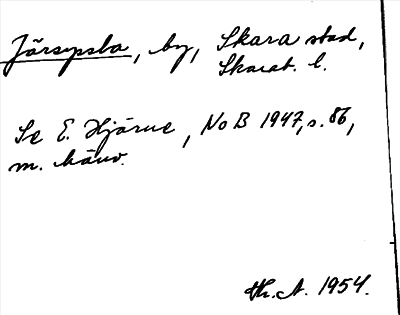 Järsysla, by, Skara stad,
Skarab. l.
Se E. Hjärne, NoB 1947, s. 86,
m. hänv.
1954.